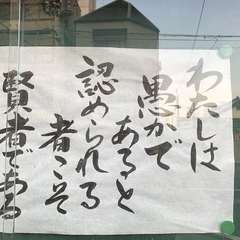 わたしは
愚かで
あると
認められる
者こそ
賢者である